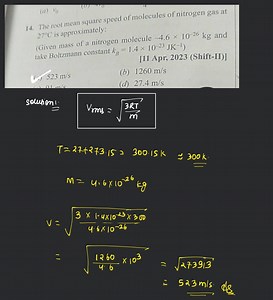 (a)
14. The root mean square speed of molecules of nitrogen gas at
27°C is approximately:
(Given mass of a nitrogen molecule –4.6 × 10⁻²⁶ kg and
take Boltzmann constant k_B = 1.4 × 10⁻²³ JK⁻¹)
[11 Apr, 2023 (Shift-II)]
523 m/s (b) 1260 m/s
91 m/s (d) 27.4 m/s
Solution:
Vrms = √(3RT/m)
T = 27+273.15 = 300.15k ≈ 300k
m = 4.6×10⁻²⁶ kg
V = √(3 × 1.4×10⁻²³ × 300 / 4.6×10⁻²⁶)
= √(1260/4.6 × 10³) = √273913
= 523 m/s